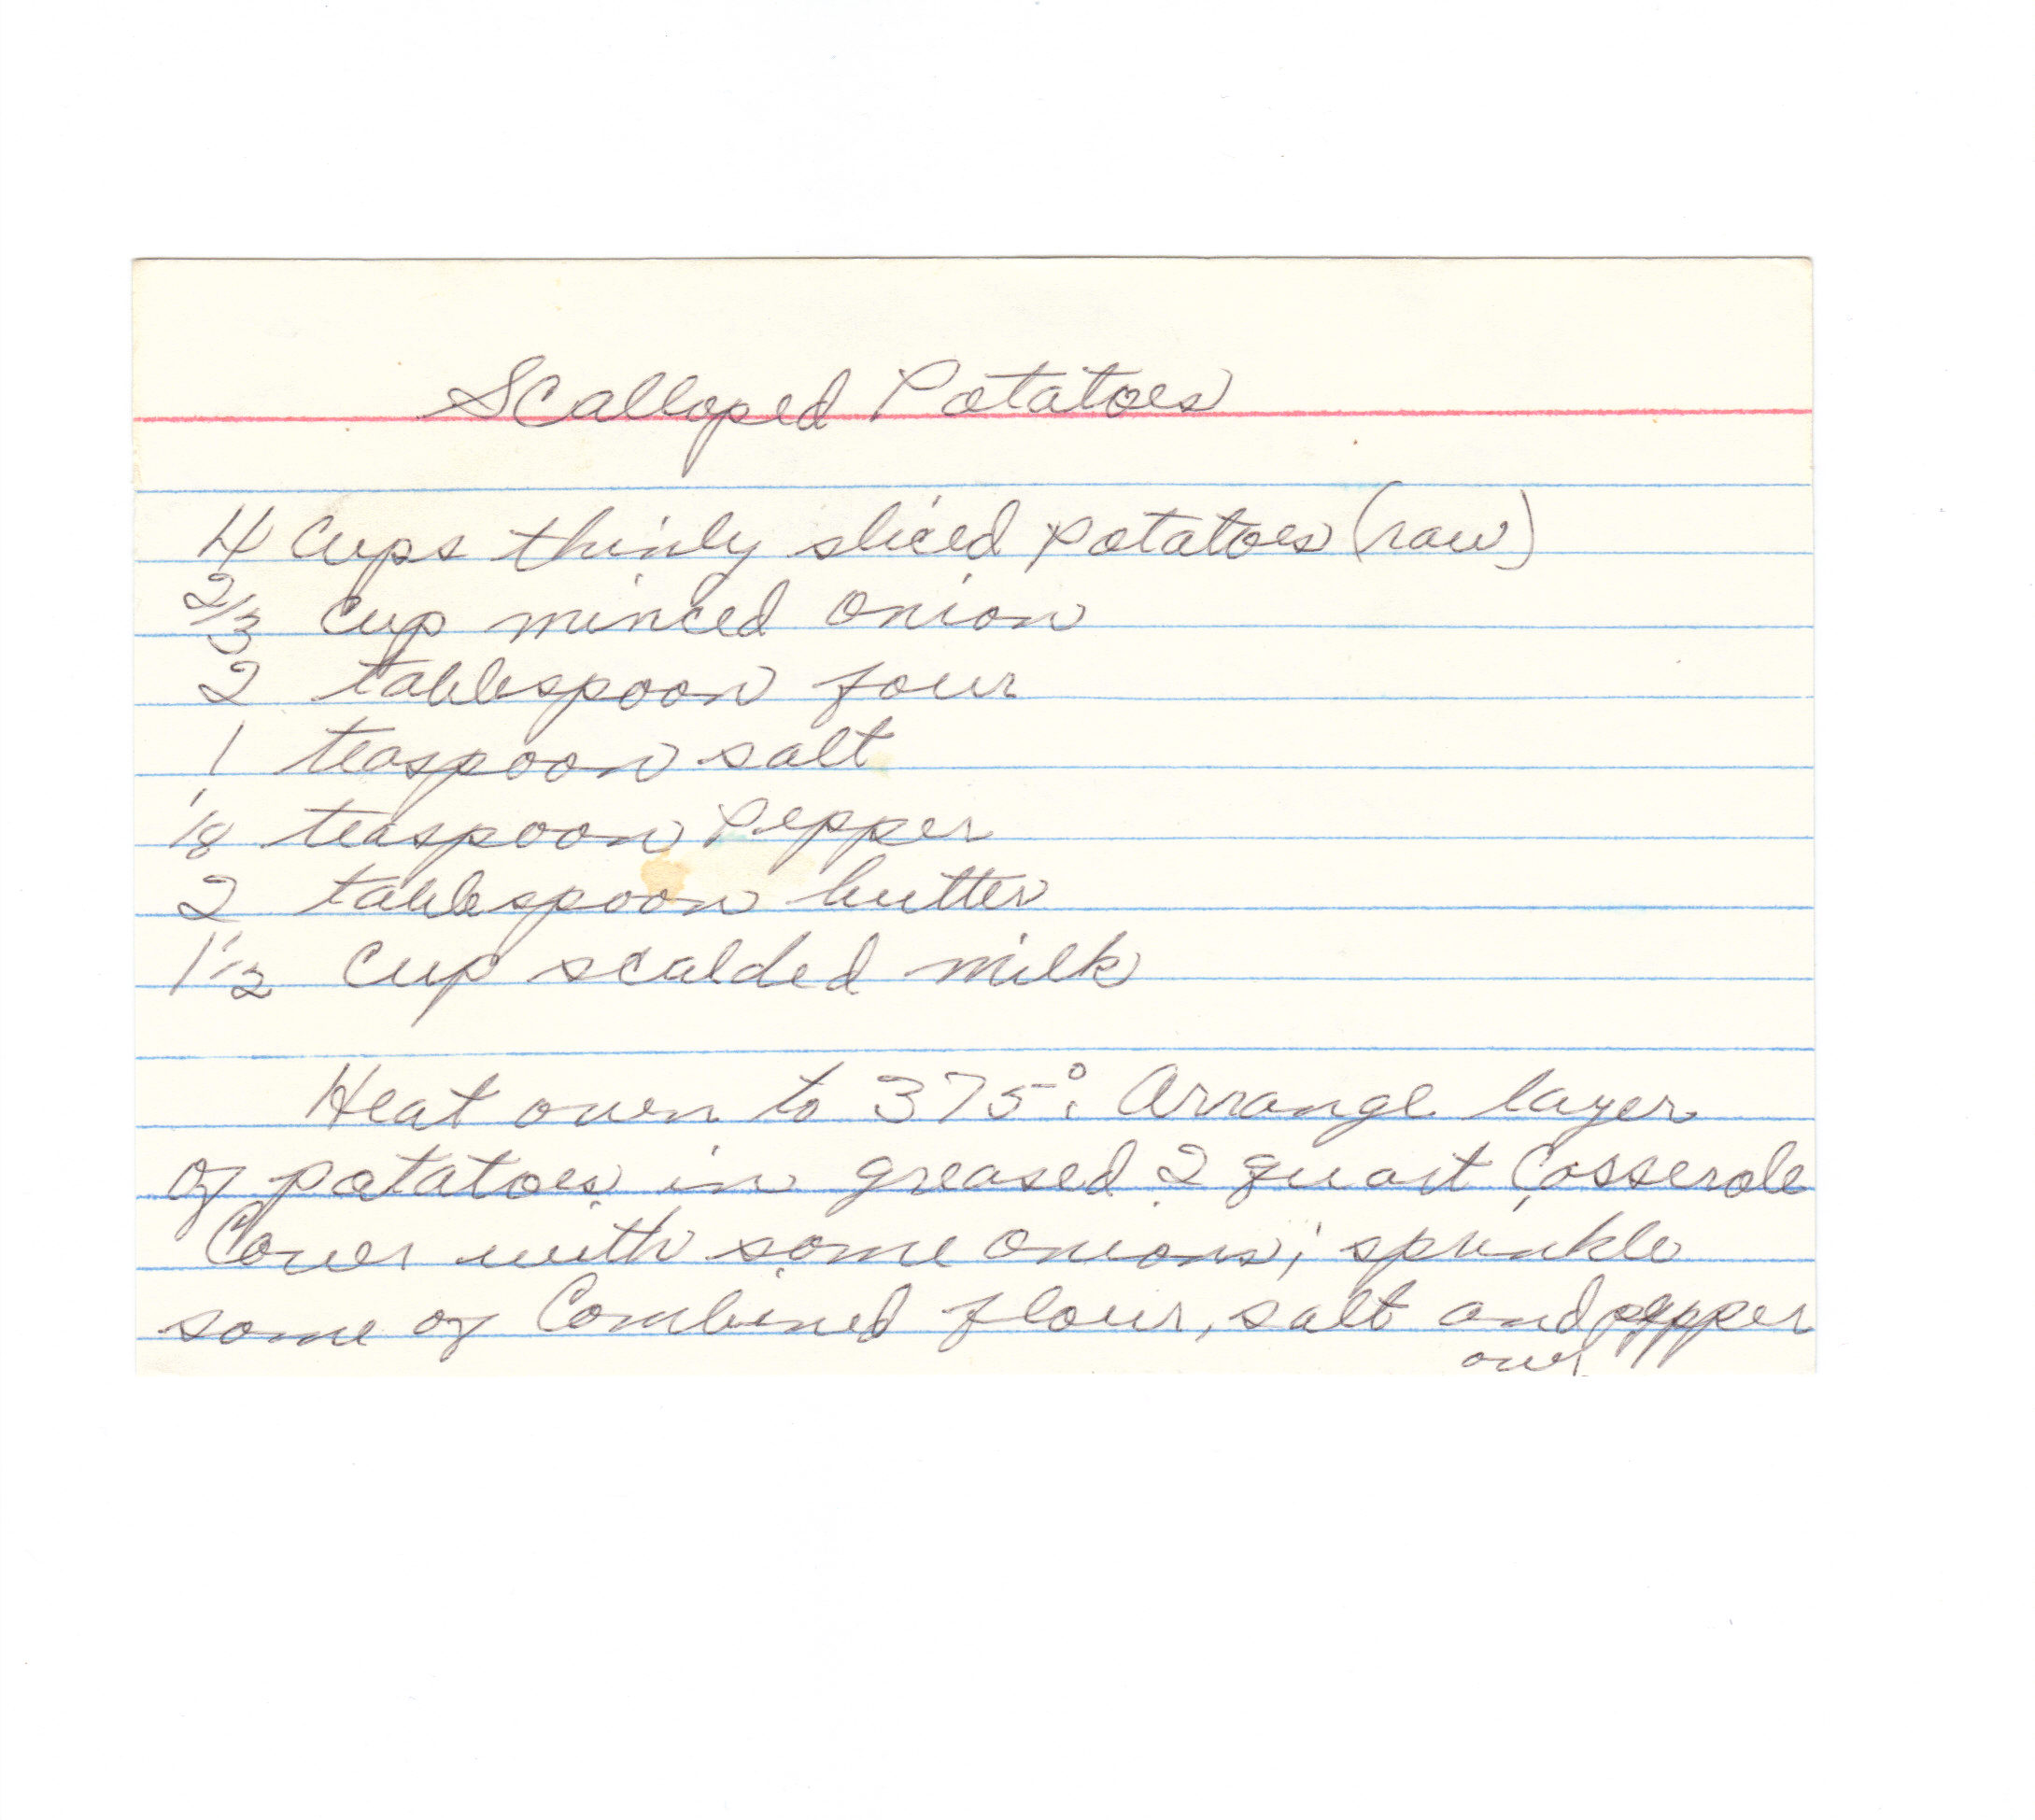 Scalloped Potatoes
4 Cups thinly sliced potatoes (raw)
2/3 Cup minced onion
2 tablespoon four
1 teaspoon salt
1/8 teaspoon Pepper
2 tablespoon butter
1 1/2 Cup scalded milk
Heat oven to 375°. Arrange layer
of potatoes in greased 2 quart Casserole
Cover with some onions; sprinkle
some of Combined flour, salt and pepper
over